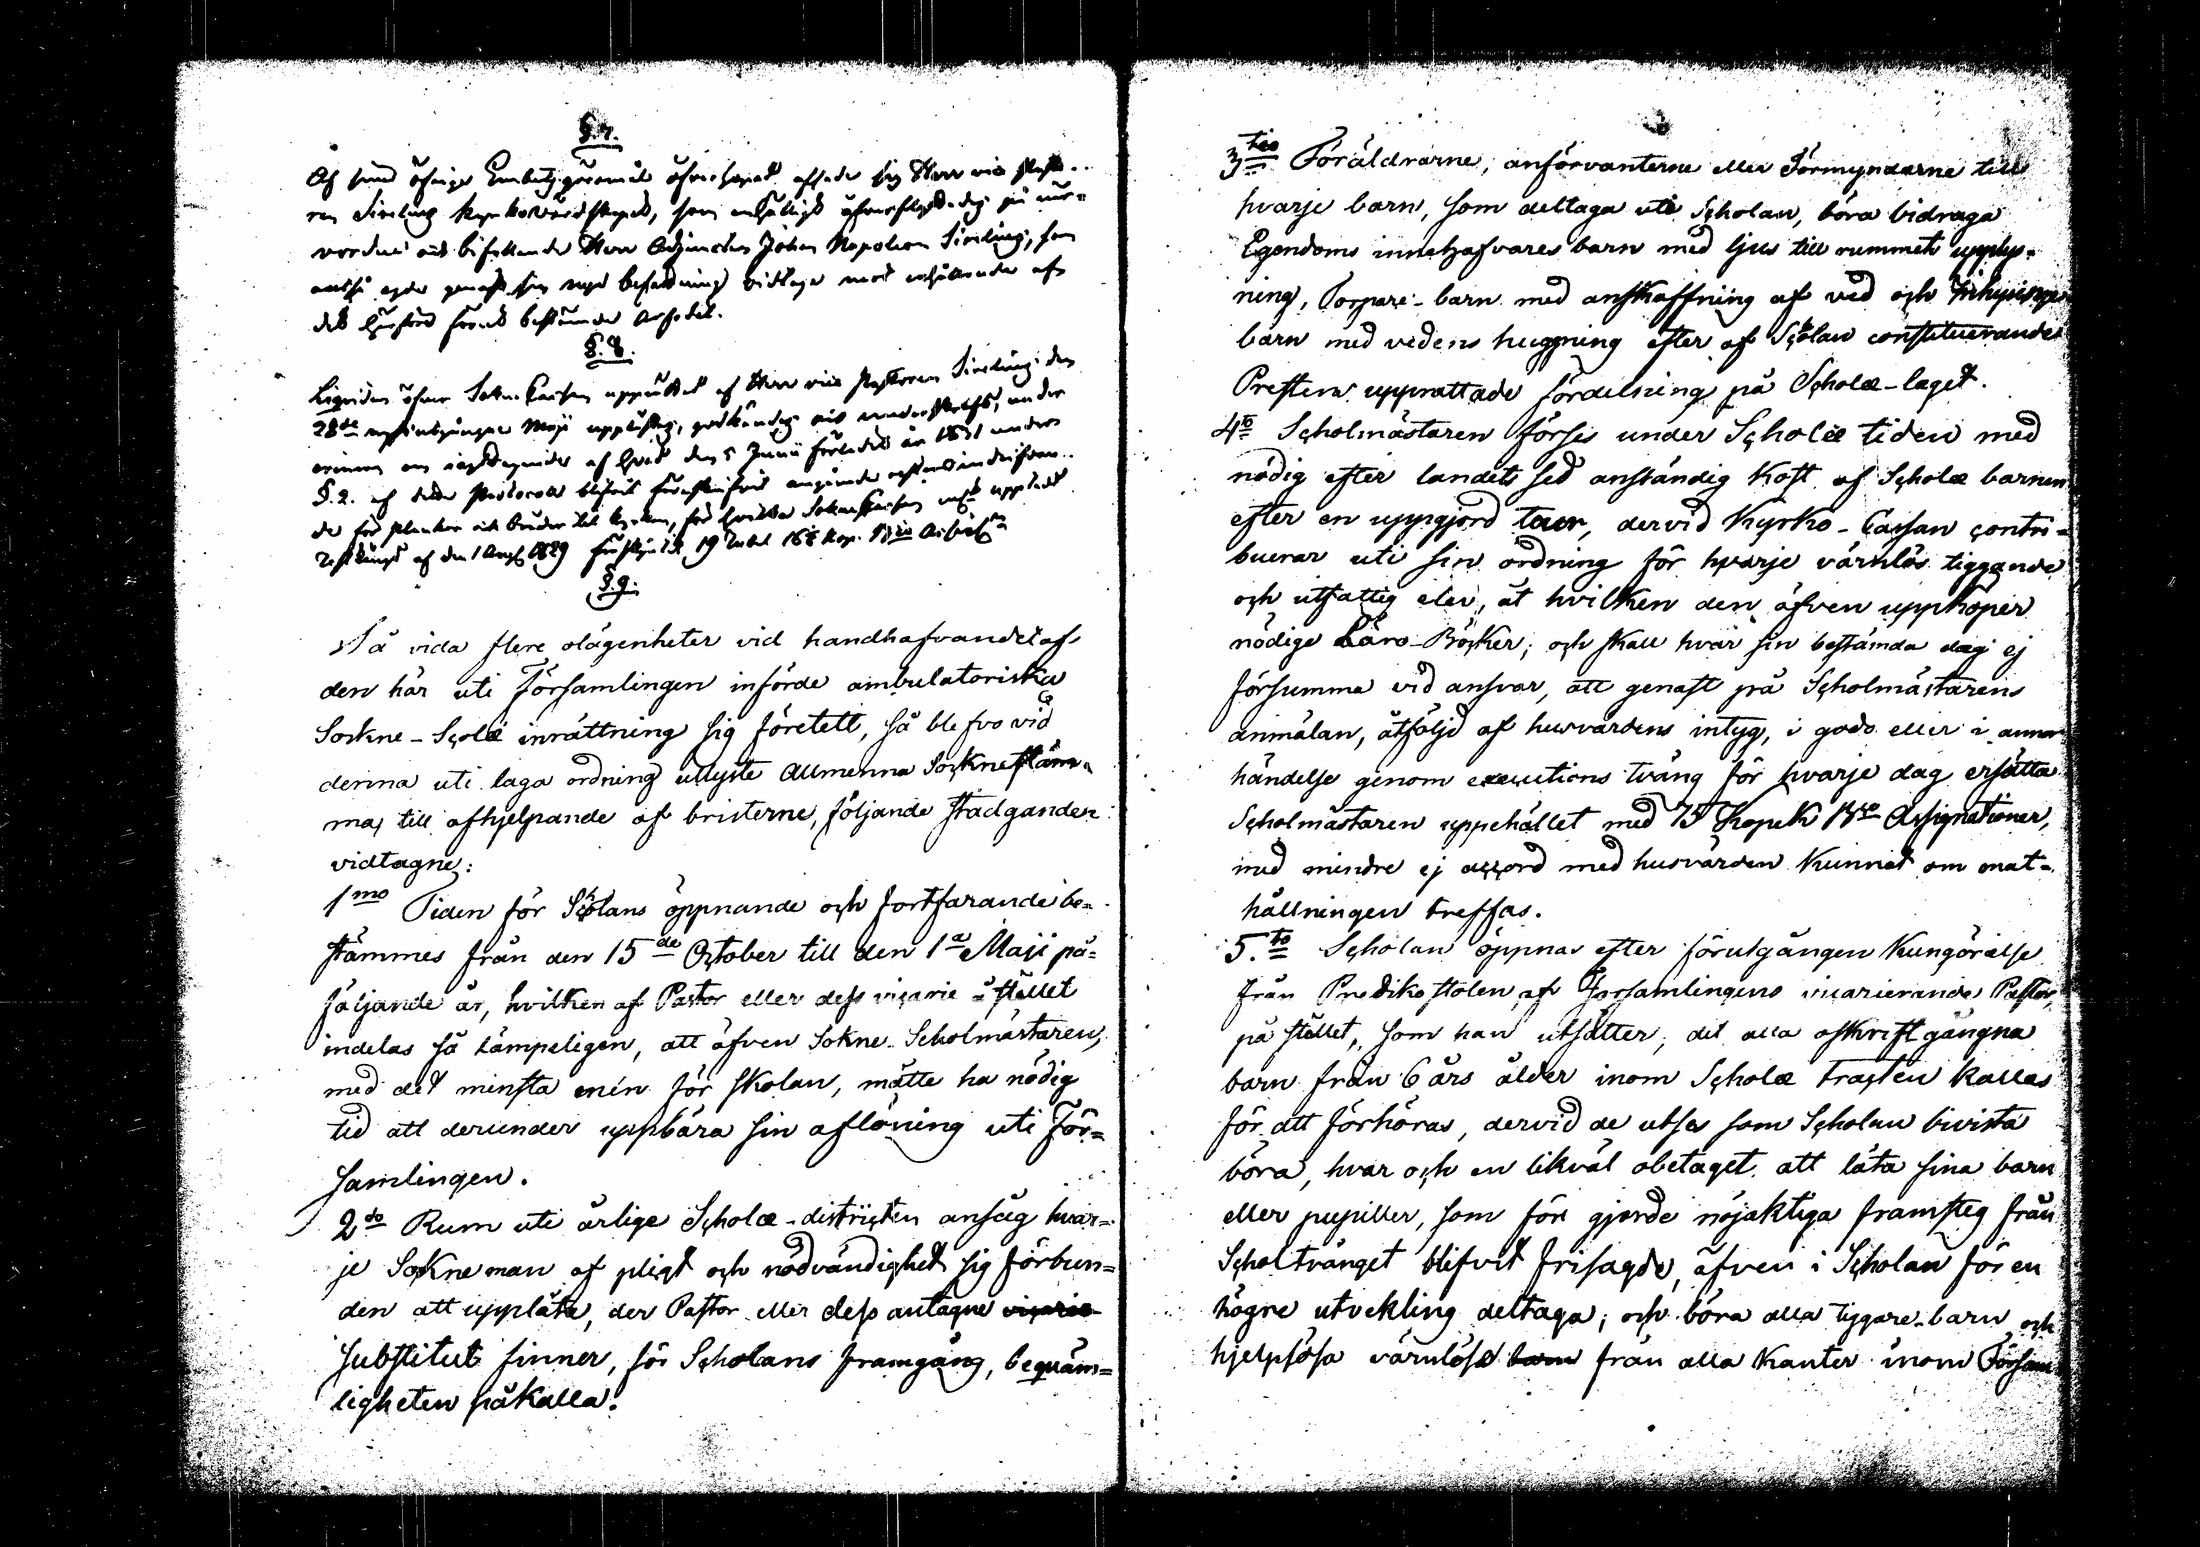 §.7.
Af sina öfrige Embetsgöromål öfverhopad afsade sig Herr vice Pasto-
ren Sireling Kyrkovärdskapet, som enhälligt öfverflyttades på när-
vordne ock bifallande Herr Adjuncten Johan Napoleon Sireling, som
genast sin nya befattning vidtaga mot erhållande af
det härförd förut bestämda Arfodet.
§.8.
öfver Sokne Cassan upprättad af Herr vice Pastoren Sireling den
28de Maji upplästes, godkändes ock underskrefs, under
erinran om af hvad den 5 Junii förledit år 1831 under
§.2. af detta Protocoll blifvit
de för plankor ock bräder till Kyrkan, för hvilka Sokne Cassan
af den 1 1829 19 Rubel 16 Kop.
§.9.
Så vida flere olägenheter vid handhafvandet af
den här uti Församlingen införde ambulatoriska
Sockne-Scolæ inrättning sig företett, så blefvo vid
denna uti laga ordning utlyste Allmenna Socknestäm-
ma, till afhjelpande af bristerne, följande stadganden
vidtagne:
1mo Tiden för Scholans öppnande och fortfarande be-
stämmes från den 15de October till den 1a Maji på-
följande år, hvilken af Pastor eller dess vicarie å stället
indelas så lämpeligen, att äfven Sokne-Scholmästaren,
med det minsta mén för skolan, måtte ha nödig
tid att derunder uppbära sin aflöning uti För-
samlingen.
2do Rum uti årlige Scholæ-districten ansåg hvar-
je Sokneman af pligt och nödvändighet sig förbun-
den att upplåta, der Pastor eller dess antagne vicarie
substitut finner, för Scholans framgång, beqväm-
ligheten påkalla.
3tio Föräldrarne, anförvanterne eller Förmyndarne till
hvarje barn, som deltaga uti Scholan, böra bidraga
Egendoms innehafvares barn med ljus till rummets upplys-
ning, Torpare-barn med anskaffning af ved och Inhysinge
barn med vedens huggning efter af Scholan constituerande
Prestens upprättade fördelning på Scholæ-laget.
4to Scholmästaren förses under Scholæ tiden med
nödig efter landets sed anständig Kost af Scholæ barnen
efter en uppgjord tour, dervid Kyrko-Cassan contri-
buerar uti sin ordning för hvarje värnlös tiggande
och utfattig elev, åt hvilken den äfven uppköper
nödige Läro-Böcker; och skall hvar sin bestämda dag ej
försumma vid ansvar, att genast på Scholmästarens
anmälan, åtföljd af husvärdens intyg, i godo eller i annor
händelse genom executions tvång för hvarje dag ersätta
Scholmästaren uppehållet med 75 Kopek Bco Assignationer,
med mindre ej accord med husvärden kunnat om mat-
hållningen treffas.
5.to Scholan öppnas efter förutgången Kungörelse
från Predikostolen af Församlingens vicarierande Pastor,
på stället, som han utsätter, dit alla oskriftgångna
barn från 6 års ålder inom Scholæ tracten kallas
för att förhöras, dervid de utses som Scholan bivista
böra, hvar och en likväl obetaget att låta sina barn
eller pupiller, som för gjorde nöjaktiga framsteg från
Scholtvånget blifvit frisagde, äfven i Scholan för en
högre utvekling deltaga; och böra alla tiggare-barn och
hjelplösa värnlösa barn från alla Kanter inom Försam-